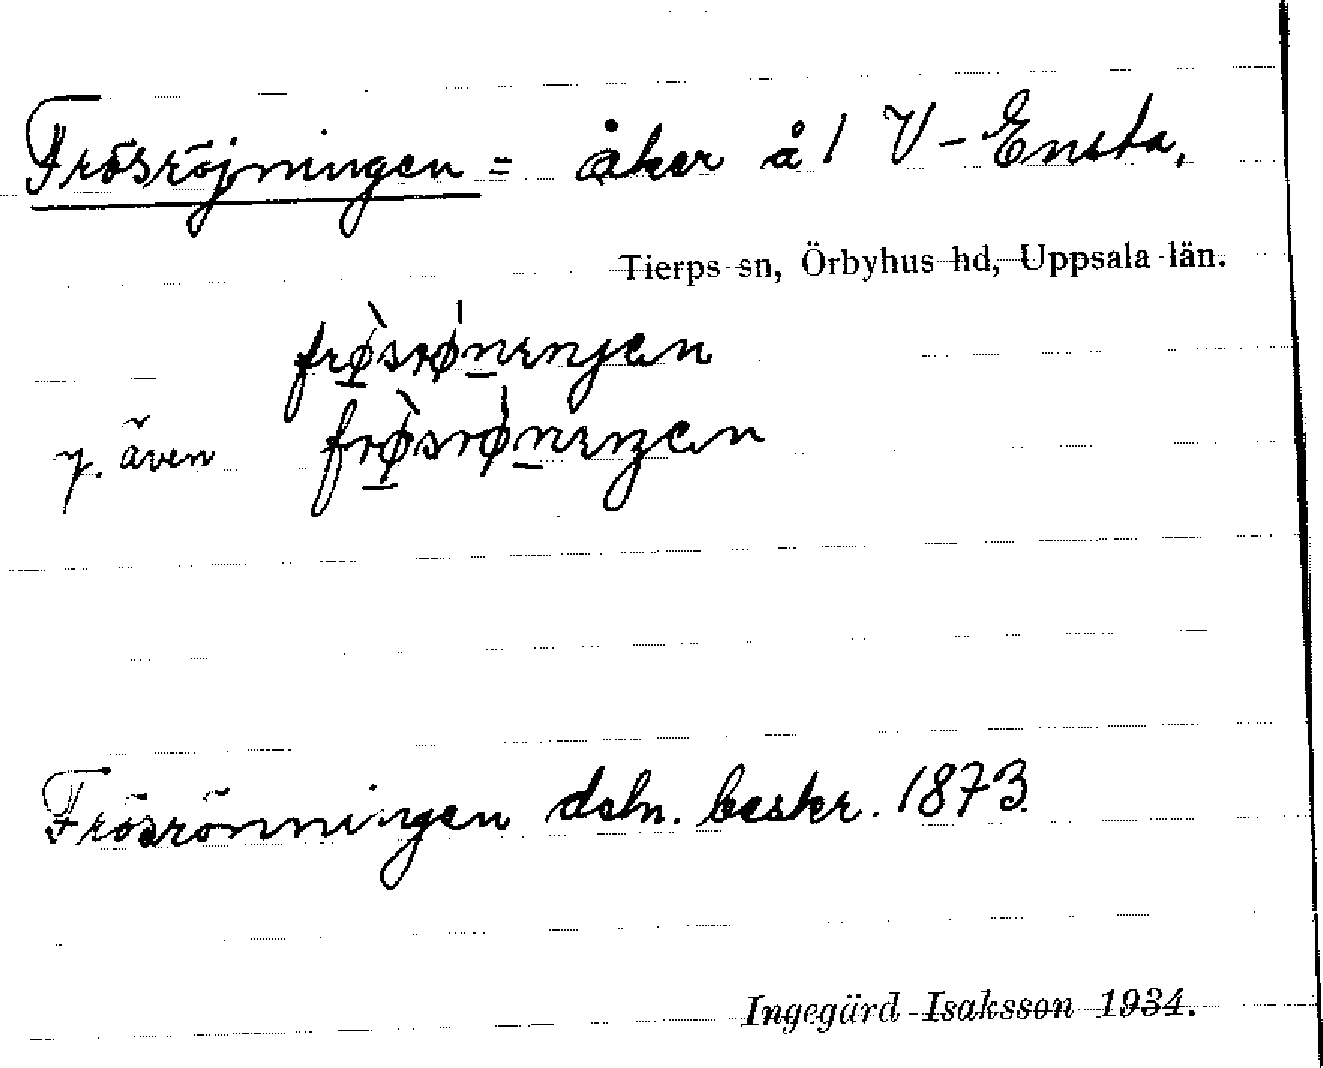 Frösröjningen = åker å 1 V-Ensta,
Tierps sn, Örbyhus hd, Uppsala län.
frø̀srø̍nıŋen
y. även frø̀srø̍nıŋen
Frösrönningen dsln. beskr. 1873.
Ingegärd Isaksson 1934.